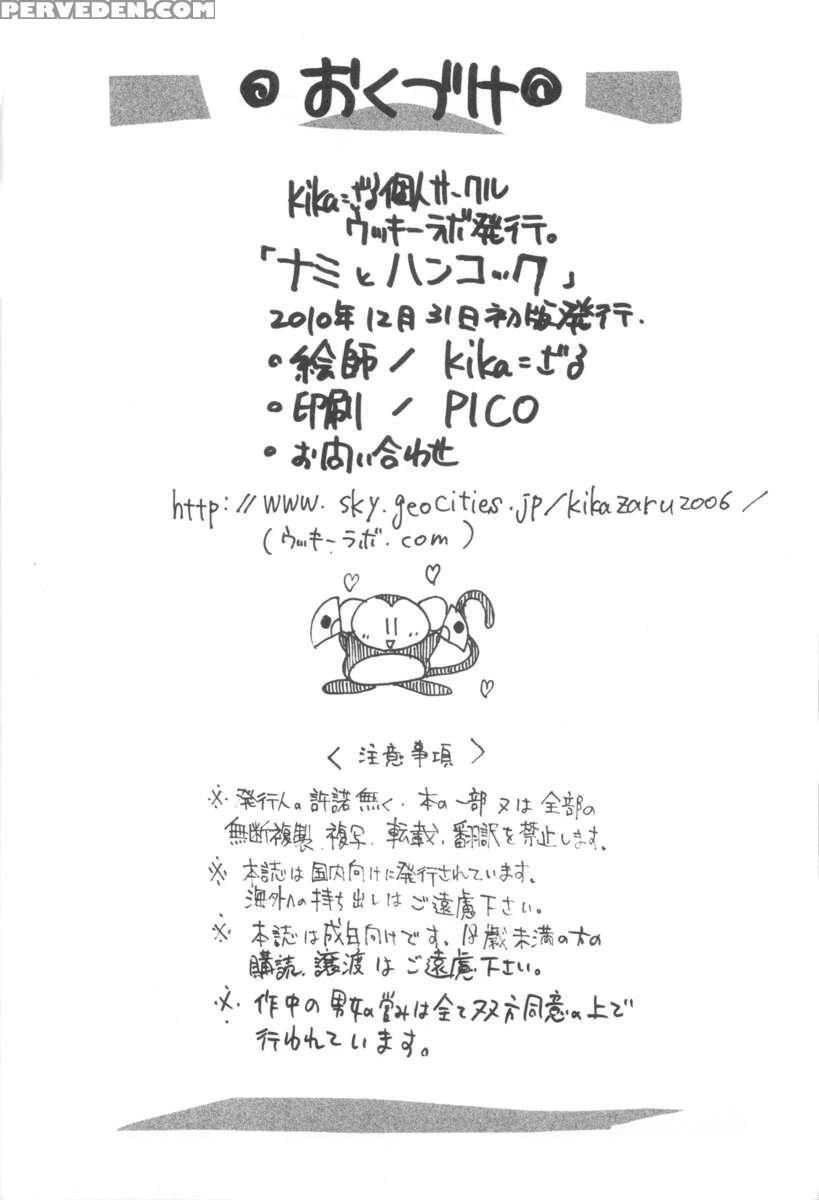 PERVEDEN.COM
おくづけ
kika=ざる個人サークル
ウッキーラボ発行。
「ナミとハンコック」
2010年12月31日初版発行.
・絵師/kika=ざる
・印刷/PICO
・お問い合わせ
http://www.sky.geocities.jp/kikazaru2006/
(ウッキーラボ.com)
〈注意事項〉
※発行人の許諾無く、本の一部又は全部の
無断複製、複写、転載、翻訳を禁止します。
※本誌は国内向けに発行されています。
海外への持ち出しはご遠慮下さい。
※本誌は成年向けです。18歳未満の方の
購読、譲渡はご遠慮下さい。
※作中の男女の営みは全て双方同意の上で
行われています。